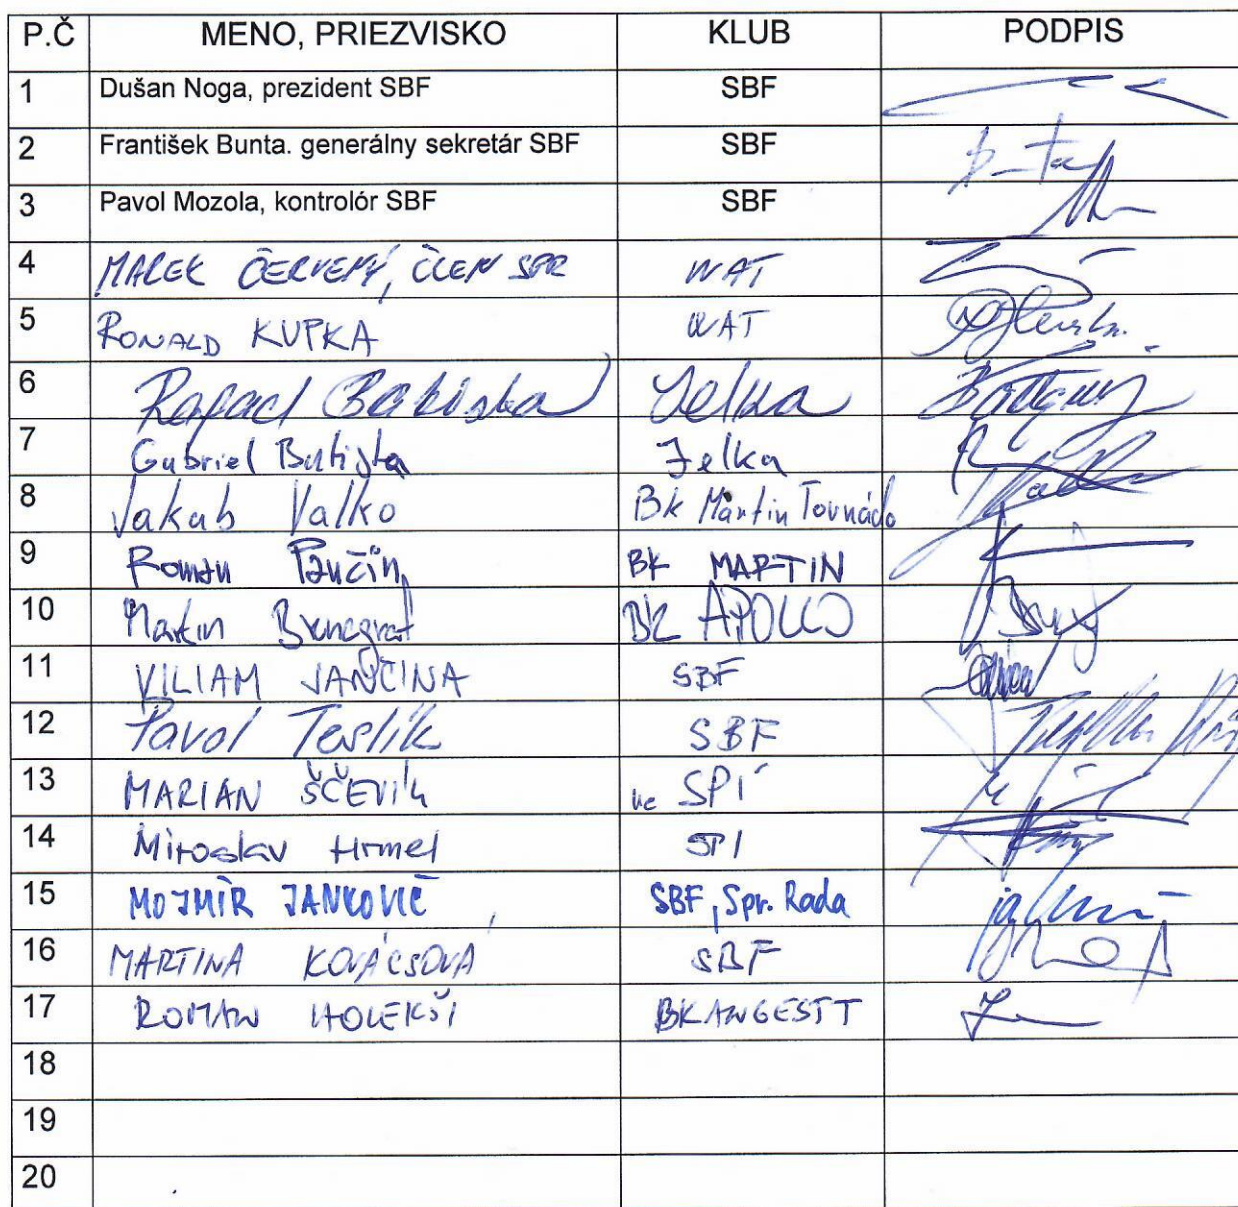 P.Č MENO, PRIEZVISKO KLUB PODPIS
1 Dušan Noga, prezident SBF SBF
2 František Bunta. generálny sekretár SBF SBF
3 Pavol Mozola, kontrolór SBF SBF
4 MAREK ČERVENÝ, ČLEN SPR WAT
5 RONALD KUPKA WAT
6 Rafael Jelka
7 Gabriel Jelka
8 Jakub Valko BK Martin Tornádo
9 Roman Pančin BK MARTIN
10 Martin BK APOLLO
11 VILIAM JANČINA SBF
12 Pavol Teslík SBF
13 MARIAN ŠČEVIK SPI
14 Miroslav Hrmel SPI
15 MOJMÍR JANKOVIČ SBF, Spr. Rada
16 MARTINA KOVÁCSOVÁ SBF
17 ROMAN HOLEKŠI BK ANGESTT
18
19
20